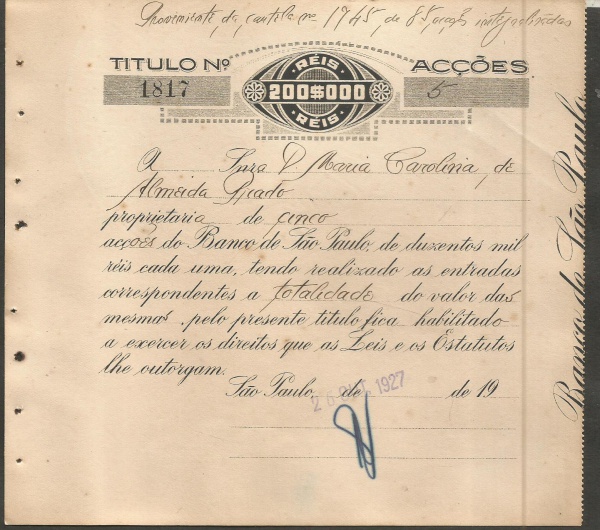 Proveniente da cautela nº 1745, de 85 acções integralisadas
TITULO Nº
1817
RÉIS
200$000
RÉIS
ACÇÕES
5
A Snra D. Maria Carolina de
Almeida Prado
proprietaria de cinco
acções do Banco de São Paulo, de duzentos mil
réis cada uma, tendo realizado as entradas
correspondentes a totalidade do valor das
mesmas, pelo presente titulo fica habilitado
a exercer os direitos que as Leis e os Estatutos
lhe outorgam.
São Paulo, de de 19
26 1927
Banco de São Paulo